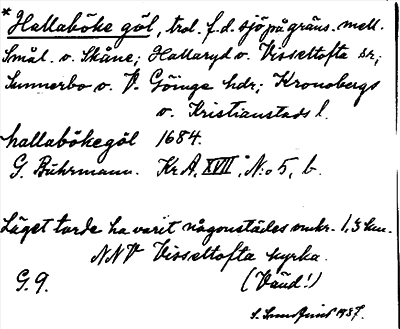 * Hallaböke göl, trol. f.d. sjö på gräns. mell.
Smål. o. Skåne; Hallaryd o. Visseltofta sr;
Sunnerbo o. V. Göinge hdr; Kronobergs
o. Kristianstads l.
hallabökegöl 1684.
G. Buhrmann. Kr. A. XVIII, N:o 5, b.
Läget torde ha varit någonstädes omkr. 1,3 km.
NNV Visseltofta kyrka.
G. 9. (Vänd!)
S. Sundquist 1937.